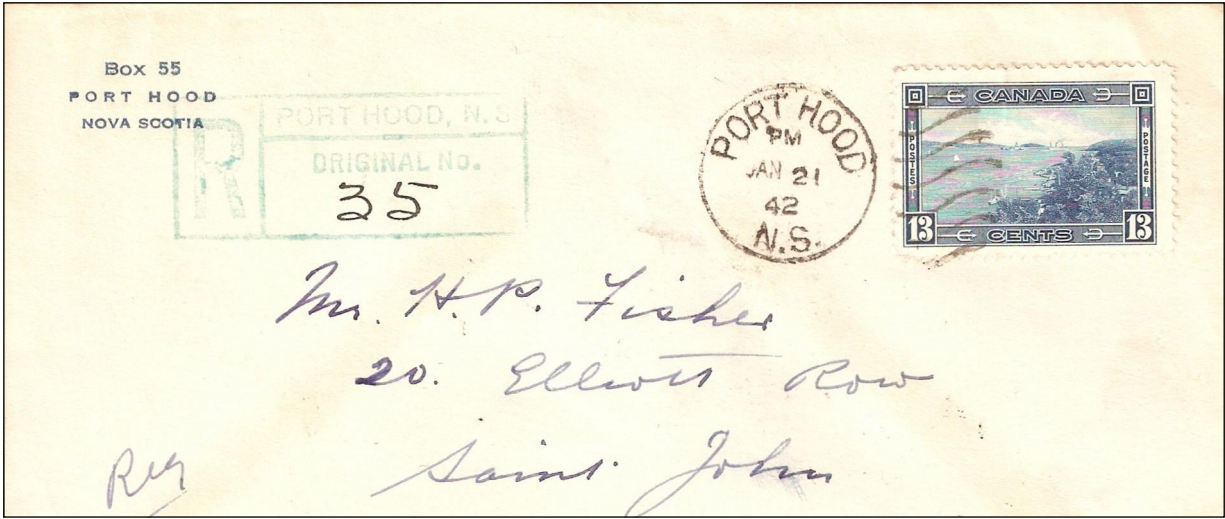 Box 55
PORT HOOD
NOVA SCOTIA
R
PORT HOOD, N.S
ORIGINAL No.
35
PORT HOOD
PM
JAN 21
42
N.S.
CANADA
POSTES
POSTAGE
13 CENTS 13
Mr. H.P. Fisher
20. Elliott Row
Saint John
Reg